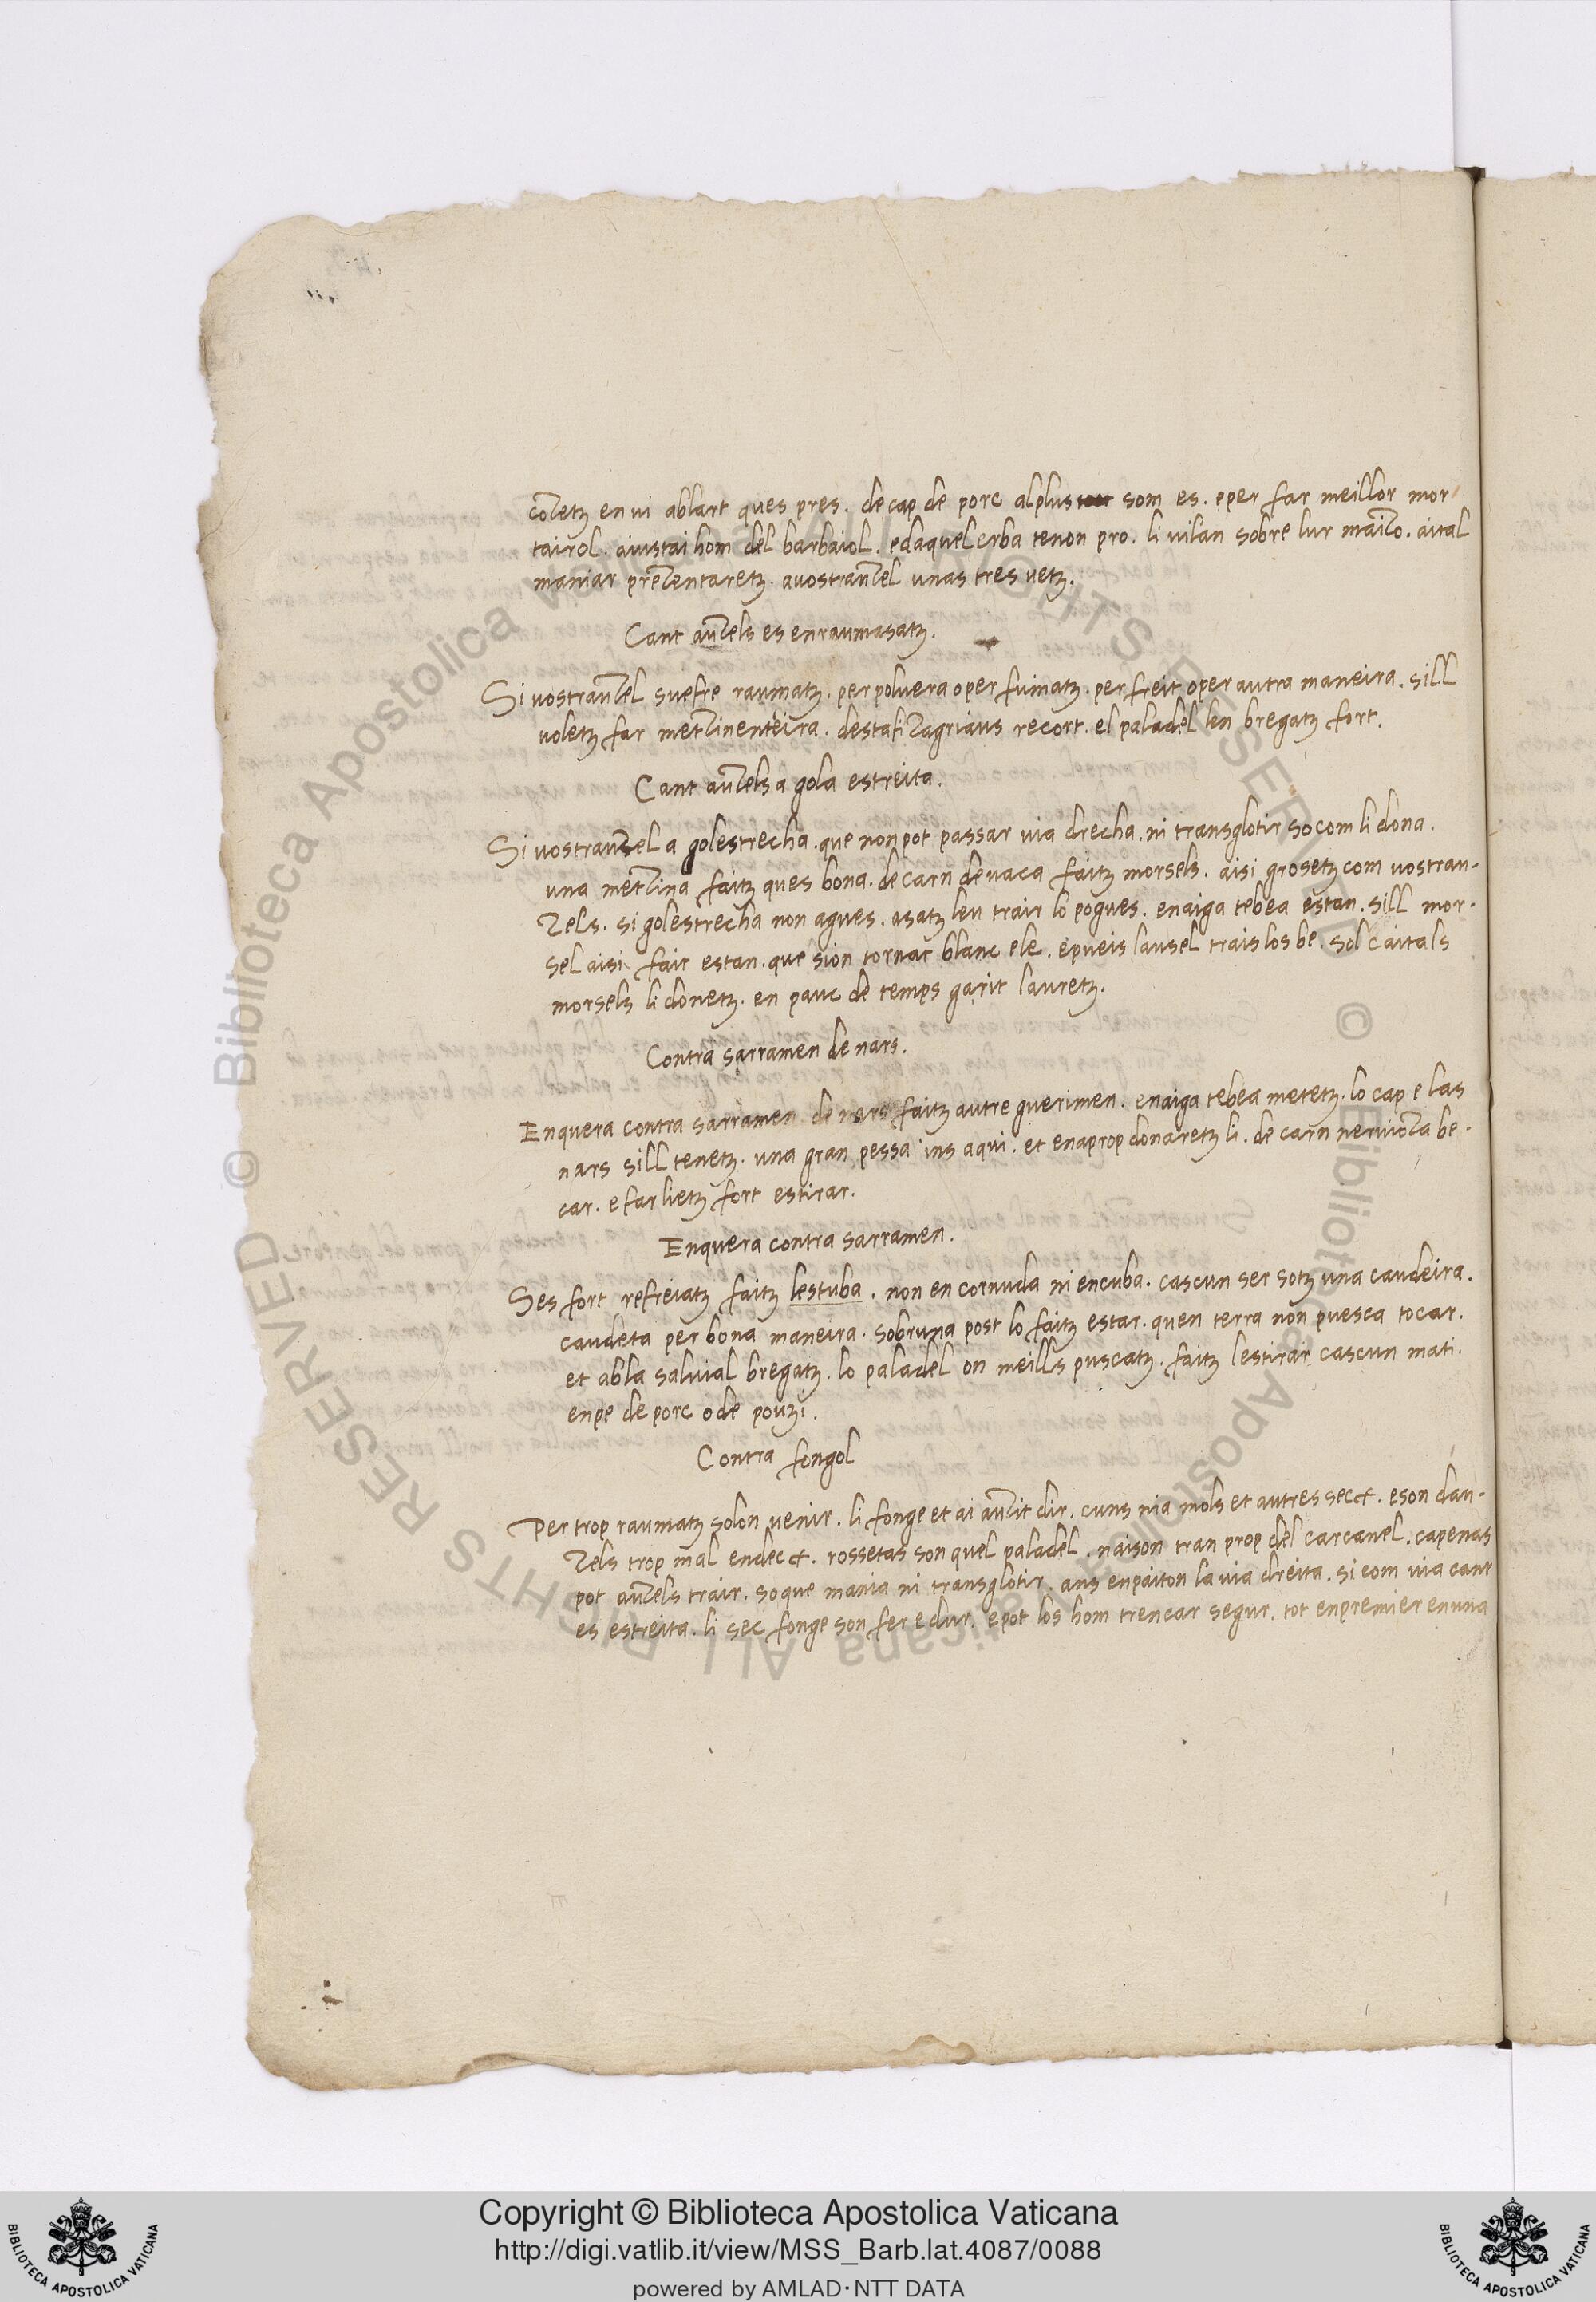 coletz en ui ablart ques pres. decap de porc alplus som es. eper far meillor mor
tairol. aiustai hom del barbaiol. edaquel erba tenon pro. li uilan sobre lur maizo. aital
maniar prezentaretz. auostrauzel unas tres uetz.
Cant auzels es enraumasatz.
Si uostrauzel suefre raumatz. per poluera oper fumatz. per freit oper autra maneira. sill
uoletz far mezinenteira. destafizagriaus recort. el paladel len bregatz fort.
Cant auzels a gola estreita.
Si uostrauzel a golestrecha. que nonpot passar uia drecha. ni transglotir socom li dona.
una metzina faitz ques bona. de carn deuaca faitz morsels. aisi grosetz com uostrau-
zels. si golestrecha non agues. asatz leu trair lo pogues. enaiga tebea estan. sill mor-
sel aisi fait estan. que sion tornat blanc ele. epueis lausel trais los be. sol caitals
morsels li donetz. en pauc de temps garit lauretz.
Contra sarramen de nars.
Enquera contra sarramen de nars faitz autre guerimen. enaiga tebea metetz. lo cap e las
nars sill tenetz. una gran pessa ins aqui. et enaprop donaretz li. de carn neruioza be-
car. e far lietz fort estirar.
Enquera contra sarramen.
Ses fort refreiatz faitz lestuba. non en cornuda ni encuba. cascun ser sotz una caudeira.
caudeta per bona maneira. sobruna post lo faitz estar. quen terra non puesca tocar.
et abla saluial bregatz. lo paladel on meills puscatz. faitz lestirar cascun mati.
enpe de porc ode pouzi.
Contra fongol
Per trop raumatz solon uenir. li fonge et ai auzit dir. cuns nia mols et autres secx. eson dau-
zels trop mal endecx. rossetas son quel paladel. naison tran prop del carcanel. capenas
pot auzels trair. soque mania ni transglotir. ans enpaiton la uia dreita. si com uia cant
es estreita. li sec fonge son fer edur. epot los hom trencar segur. tot enpremier enuna
Copyright © Biblioteca Apostolica Vaticana
http://digi.vatlib.it/view/MSS_Barb.lat.4087/0088
powered by AMLAD·NTT DATA